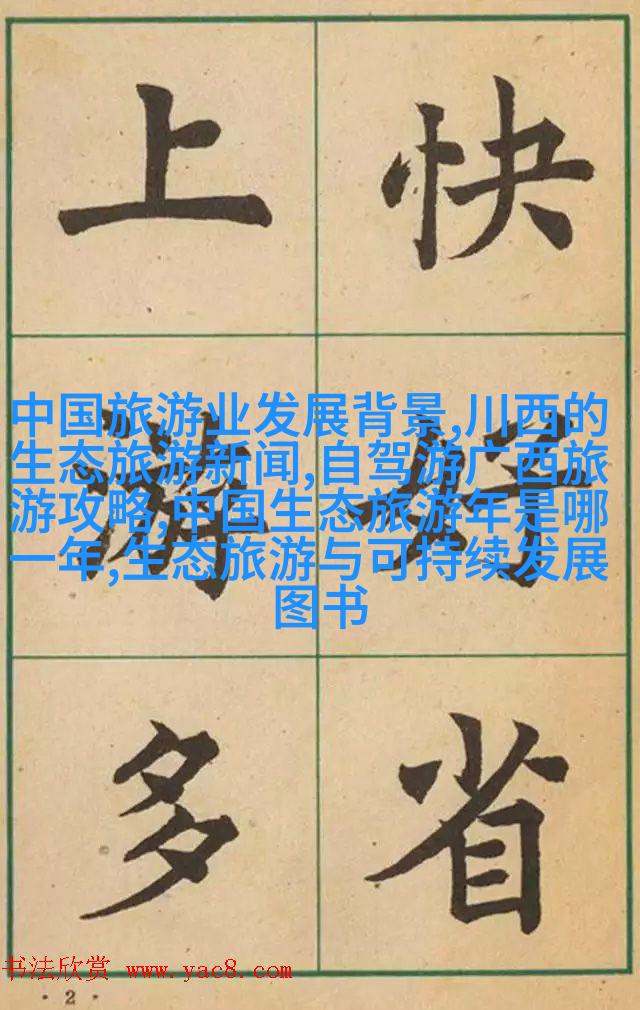 上 快
好
中国旅游业发展背景,川西的
生态旅游新闻,自驾游广西旅
游攻略,中国生态旅游年是哪
一年,生态旅游与可持续发展
图书
多 省
书法欣赏 www.yac8.com
· 2 ·